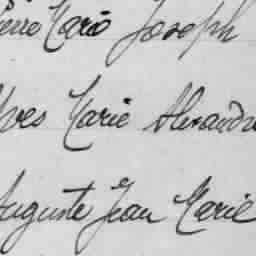 Pierre Marie Joseph
Yves Marie Alexandre
Auguste Jean Marie